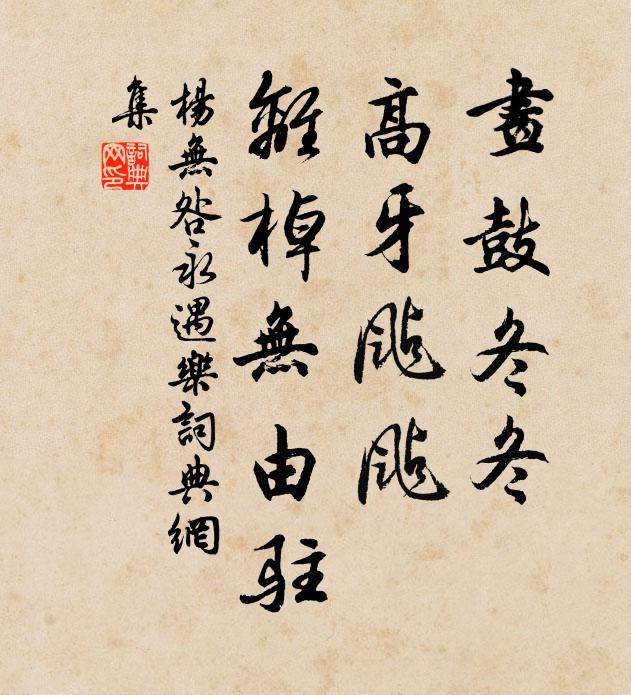 畫鼓冬冬
高牙颭颭
離棹無由駐
楊無咎永遇樂詞典網
集
詞典
网印